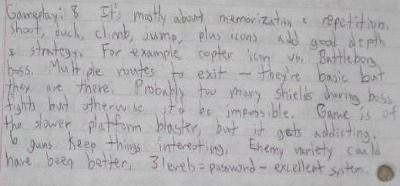 Gameplay: 8 It's mostly about memorization & repetition.
Shoot, duck, climb, jump, plus icons add good depth
& strategy. For example, copter icon vs. Battleborg
boss. Multiple routes to exit - they're basic but
they are there. Probably too many shields during boss
fights but otherwise it'd be impossible. Game is of
the slower platform blaster, but it gets addicting.
6 guns keep things interesting. Enemy variety could
have been better. 3 levels = password - excellent system.